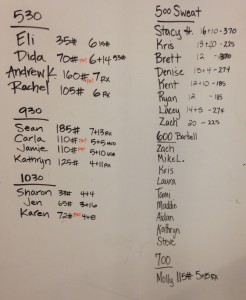 530
Eli 35# 6
Dida 70# 6+14
Andrew K. 160# 7 RX
Rachel 105# 6 RX
930
Sean 185# 7+13 RX
Carla 110# 5+5
Jamie 110# 5+10
Kathryn 125# 4+11 RX
1030
Sharon 4+4
Jen 65# 3+16
Karen 72# 4+8
500 Sweat
Stacy H. 16+10 - 370
Kris 13+20 - 225
Brett 12 - 370
Denise 13+4 - 274
Kent 12+10 - 185
Ryan 12 - 185
Lacey 14+5 - 274
Zach 20 - 225
600 Barbell
Zach
Mike L.
Kris
Laura
Tami
Maddie
Aidan
Kathryn
Steve
700
Molly 115# 5+15 RX